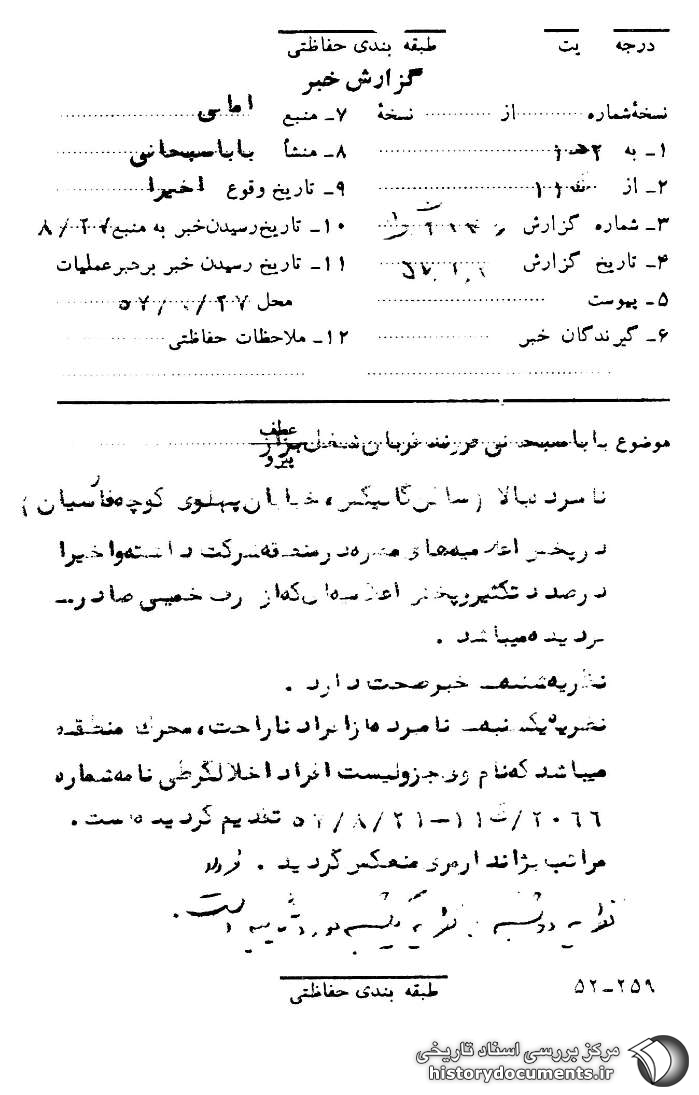 درجه یت طبقه بندی حفاظتی
گزارش خبر
نسخهٔ شماره از نسخهٔ
۱ـ به ۲هـ۱
۲ـ از ۱۱هـ
۳ـ شماره گزارش
۴ـ تاریخ گزارش
۵ـ پیوست
۶ـ گیرندگان خبر
۷ـ منبع امامی
۸ـ منشأ باباسبحانی
۹ـ تاریخ وقوع اخیرا
۱۰ـ تاریخ رسیدن خبر به منبع
۱۱ـ تاریخ رسیدن خبر برهبر عملیات
محل
۱۲ـ ملاحظات حفاظتی
عطف
موضوع باباسبحانی فرزند قربان شغل بزاز
پیرو
نامبرده بالا (ساکن گالیکش، خیابان پهلوی کوچه فارسیان)
در پخش اعلامیه‌های مضره در منطقه شرکت داشته و اخیرا
درصدد تکثیر و پخش اعلامیه‌ای که از طرف خمینی صادر
گردیده میباشد .
نظریه شنبه خبر صحت دارد .
نظریه یکشنبه نامبرده از افراد ناراحت، محرک منطقه
میباشد که نام وی جزو لیست افراد اخلالگر طی نامه شماره
۲۰۶۶/ ۱۱هـ ـ ۵۷/۸/۲۱ تقدیم گردیده است .
مراتب بژاندارمری منعکس گردید .
نظریه دوشنبه نظریه یکشنبه مورد تأیید است .
طبقه بندی حفاظتی
۵۲ـ۲۵۹
مرکز بررسی اسناد تاریخی
historydocuments.ir